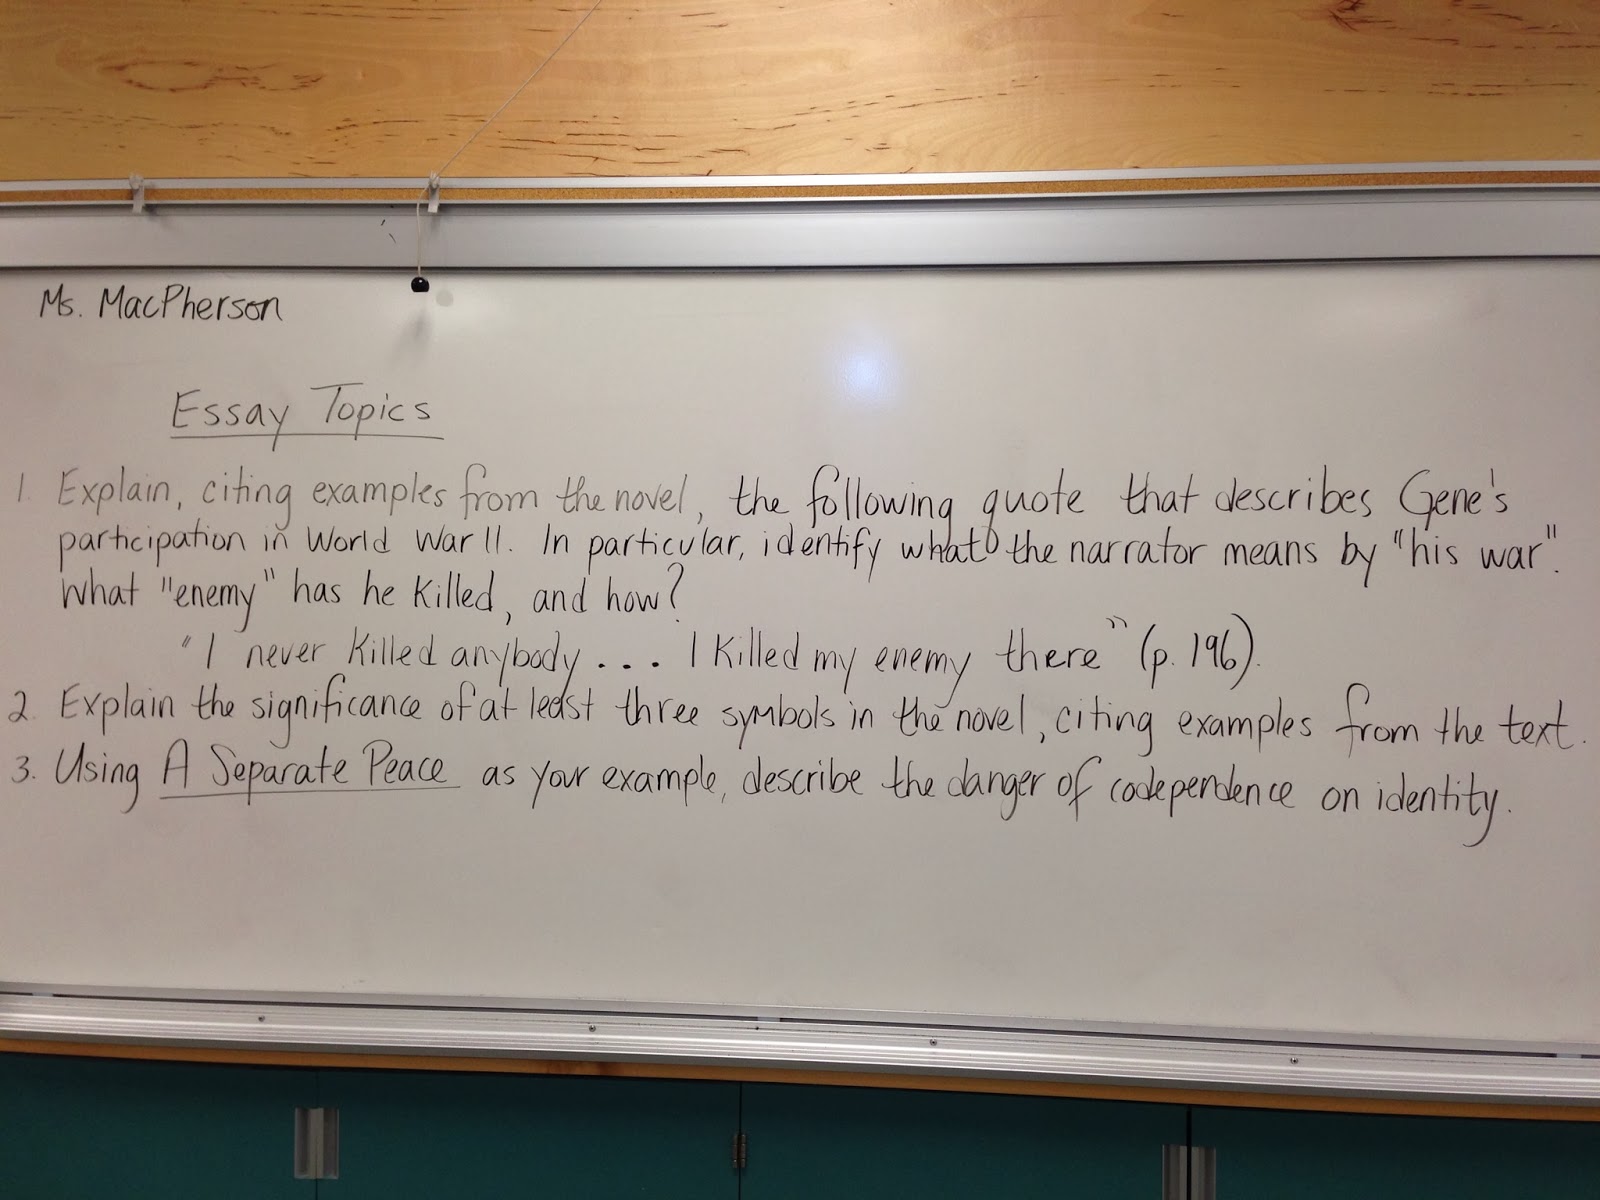 Ms. MacPherson
Essay Topics
1. Explain, citing examples from the novel, the following quote that describes Gene's
participation in World War II. In particular, identify what the narrator means by "his war".
What "enemy" has he killed, and how?
"I never killed anybody... I killed my enemy there" (p. 196).
2. Explain the significance of at least three symbols in the novel, citing examples from the text.
3. Using A Separate Peace as your example, describe the danger of codependence on identity.